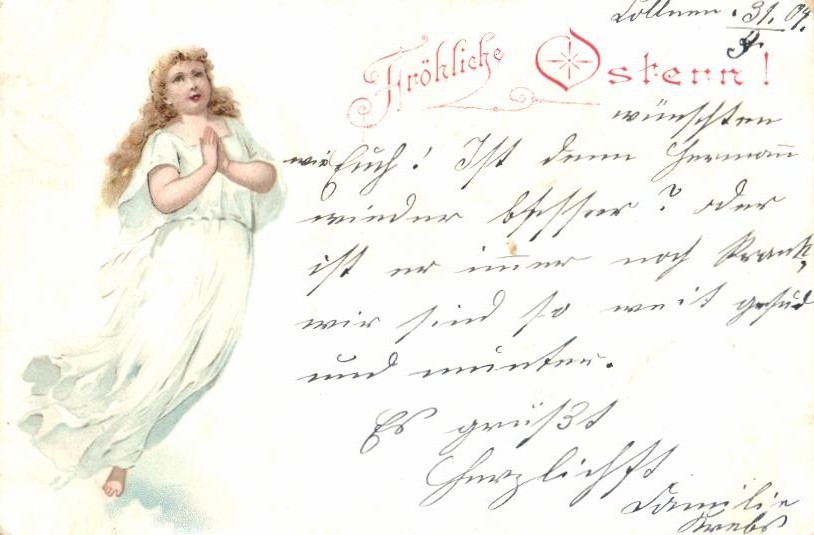 31. 04.
3.
Fröhliche Ostern!
wünschten
wir Euch! Ist denn Hermann
wieder besser? oder
ist er immer noch Krank,
wir sind so weit gesund
und munter.
Es grüßt
herzlichst
Familie
Krebs